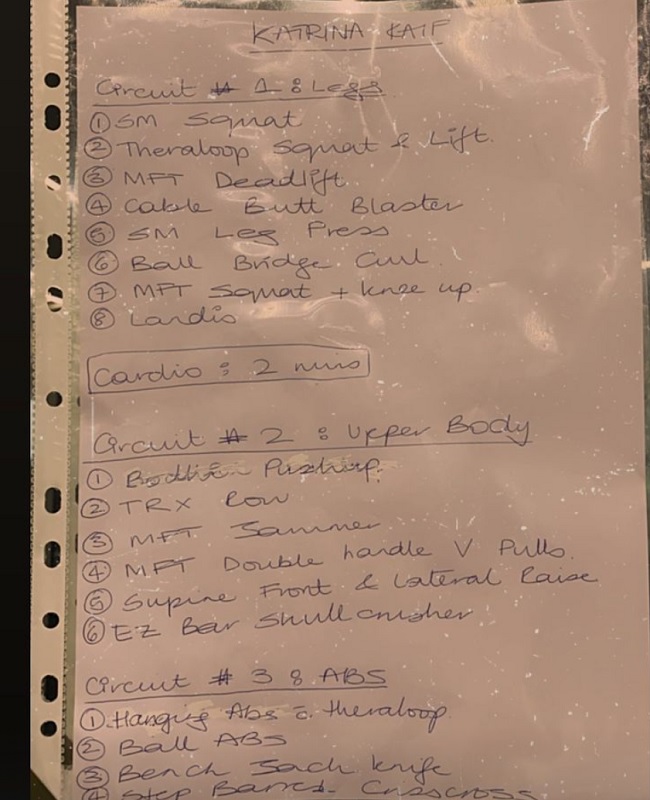 KATRINA KAIF
Circuit # 1 : Legs
① SM Squat
② Theraloop Squat & Lift.
③ MFT Deadlift.
④ Cable Butt Blaster
⑤ SM Leg Press
⑥ Ball Bridge Curl.
⑦ MFT Squat + knee up.
⑧ Cardio
Cardio : 2 mins
Circuit # 2 : Upper Body
① Pushup.
② TRX Row
③ MFT Jammer
④ MFT Double handle V Pulls.
⑤ Supine Front & Lateral Raise
⑥ EZ Bar Skull crusher
Circuit # 3 : ABS
① Hanging Abs c̄ theraloop.
② Ball ABS
③ Bench Jack knife
④ Step Crisscross